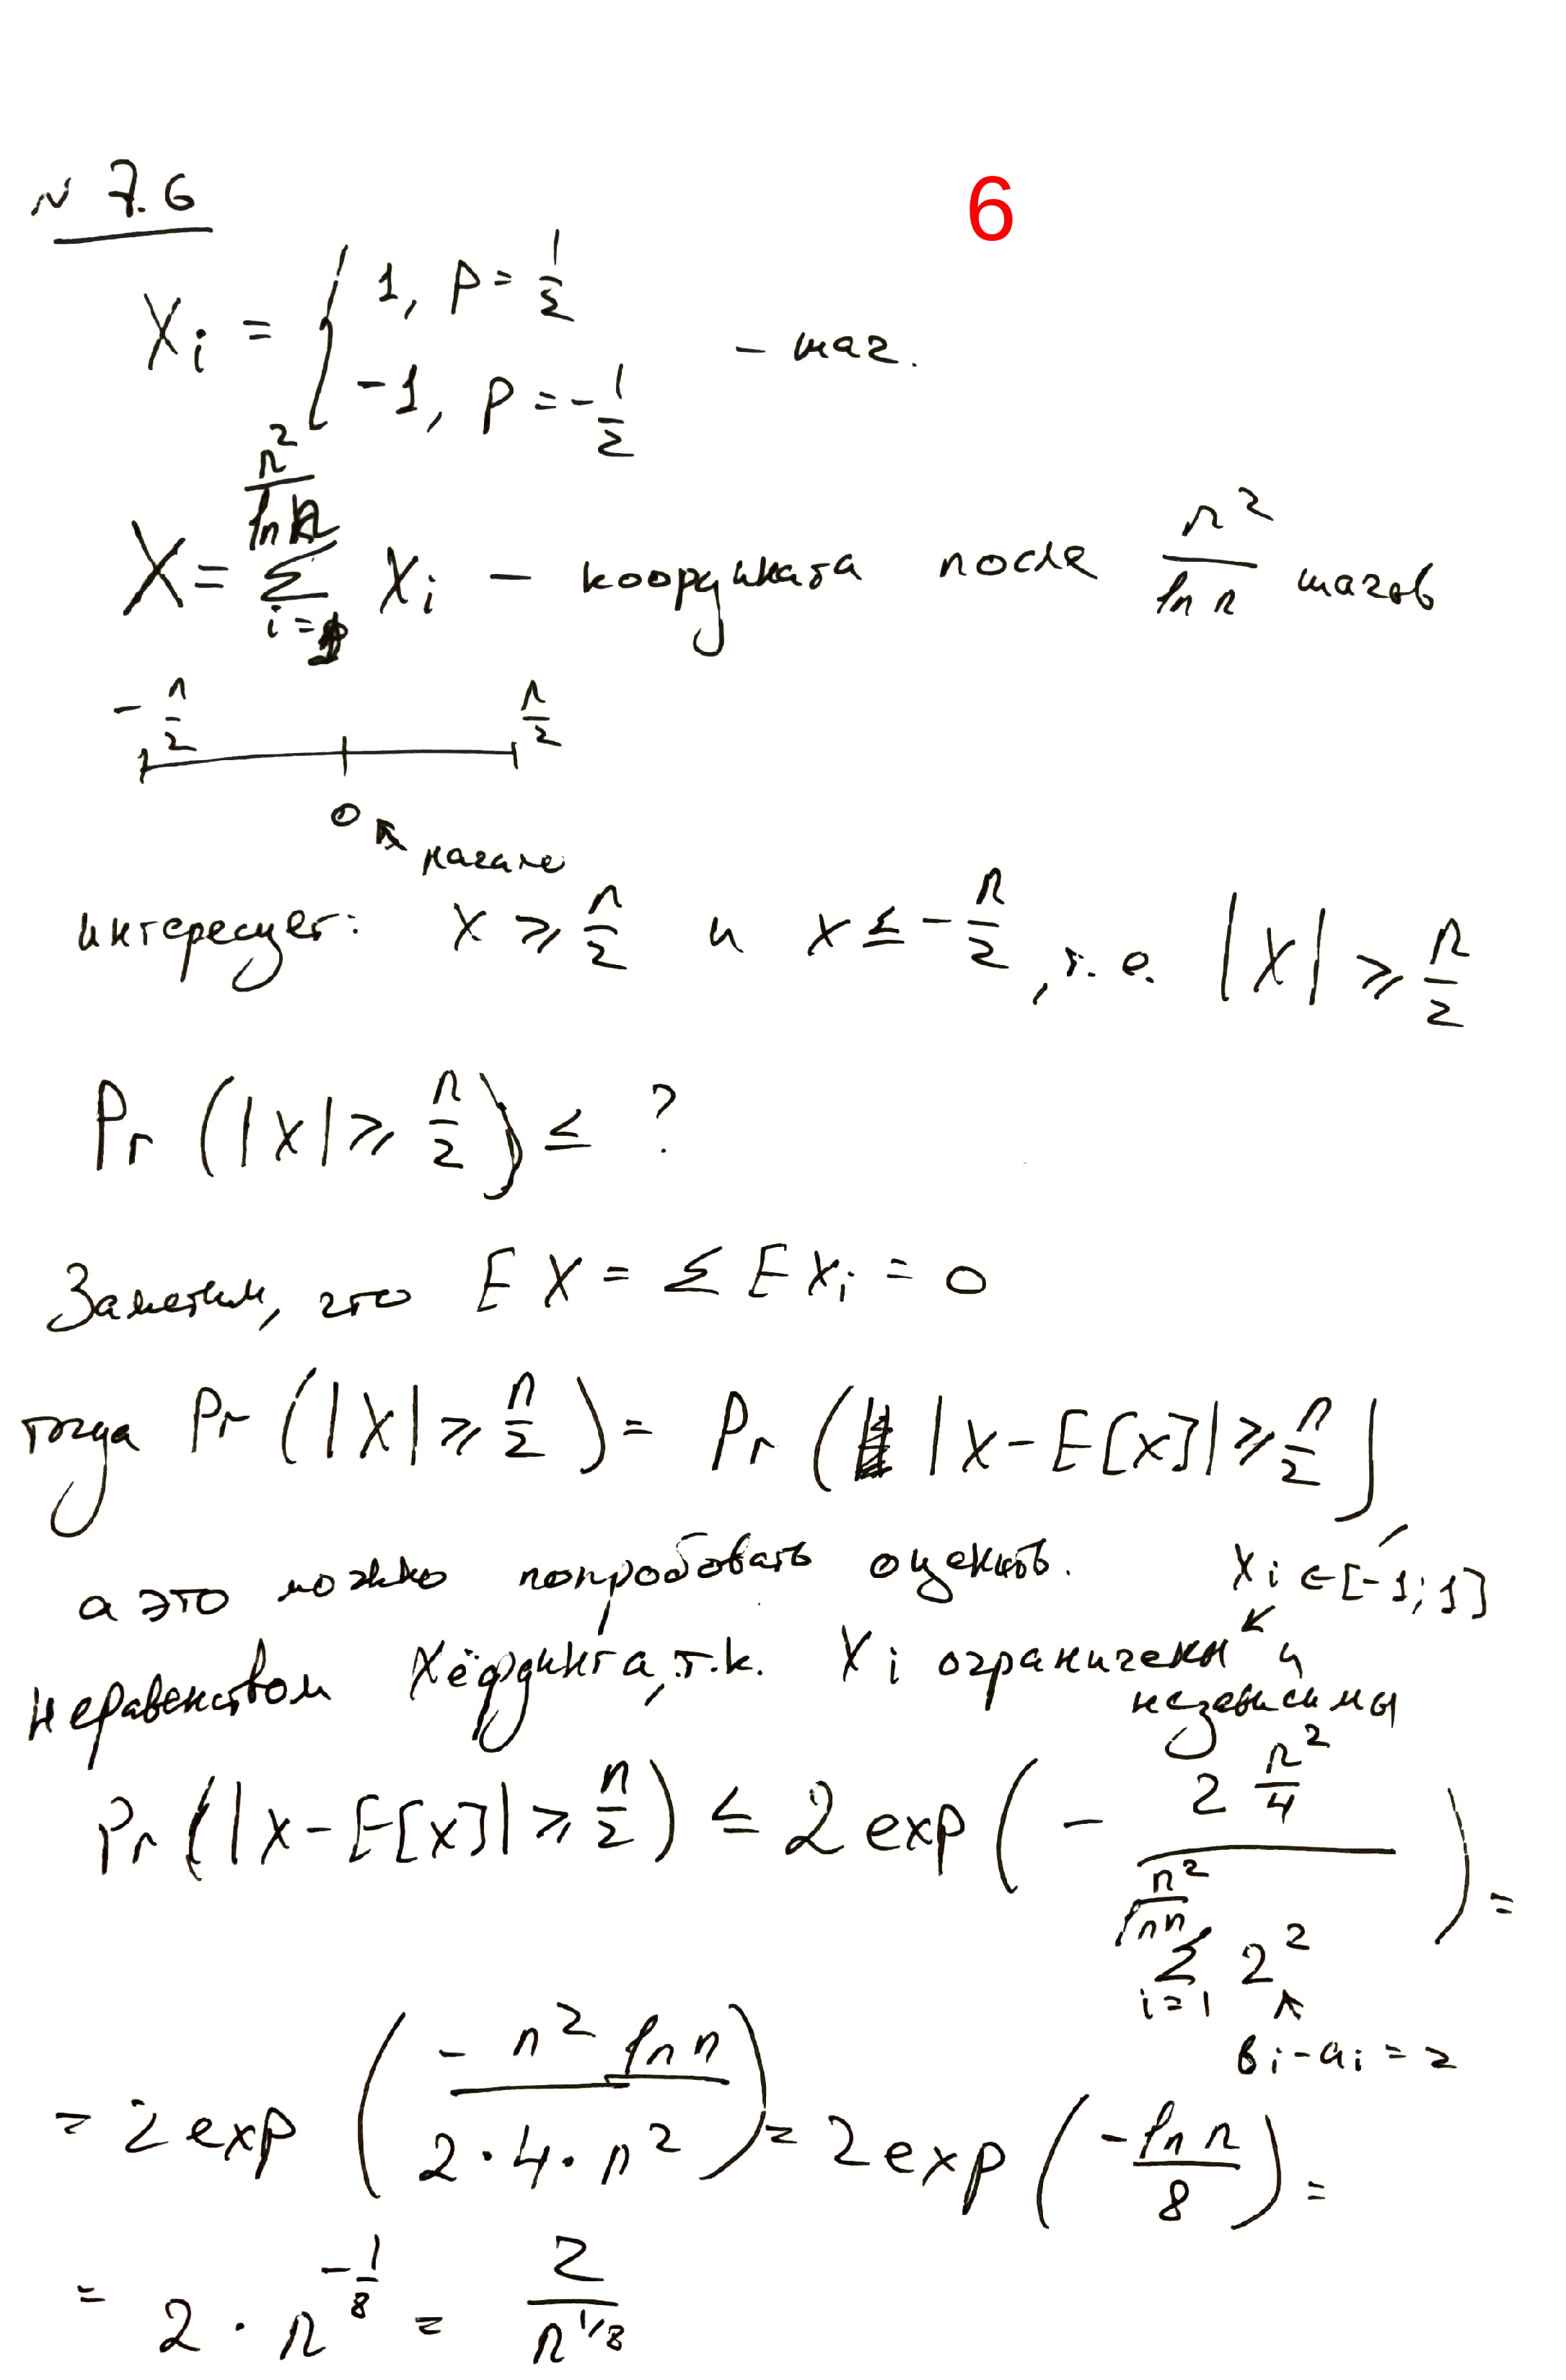 6
N 7.6
X_i = { 1, p = 1/2
-1, p = -1/2 - шаг.
X = Σ_{i=1}^{n²/ln n} X_i - координата после n²/ln n шагов
-n/2 n/2
0 ↖ начале
интересует: X ≥ n/2 и X ≤ -n/2, т.е. |X| ≥ n/2
Pr (|X| ≥ n/2) ≤ ?
Заметим, что EX = Σ EX_i = 0
тогда Pr (|X| ≥ n/2) = Pr (|X - E[X]| ≥ n/2),
а это можно попробовать оценить. X_i ∈ [-1; 1]
неравенством Хёффдинга, т.к. X_i ограничены ↙ и
независимы
Pr (|X - E[X]| ≥ n/2) ≤ 2 exp (- (2 n²/4) / (Σ_{i=1}^{n²/ln n} 2²)) =
b_i - a_i = 2
= 2 exp (-n² ln n / (2·4·n²)) = 2 exp (-ln n / 8) =
= 2 · n^{-1/8} = 2 / n^{1/8}